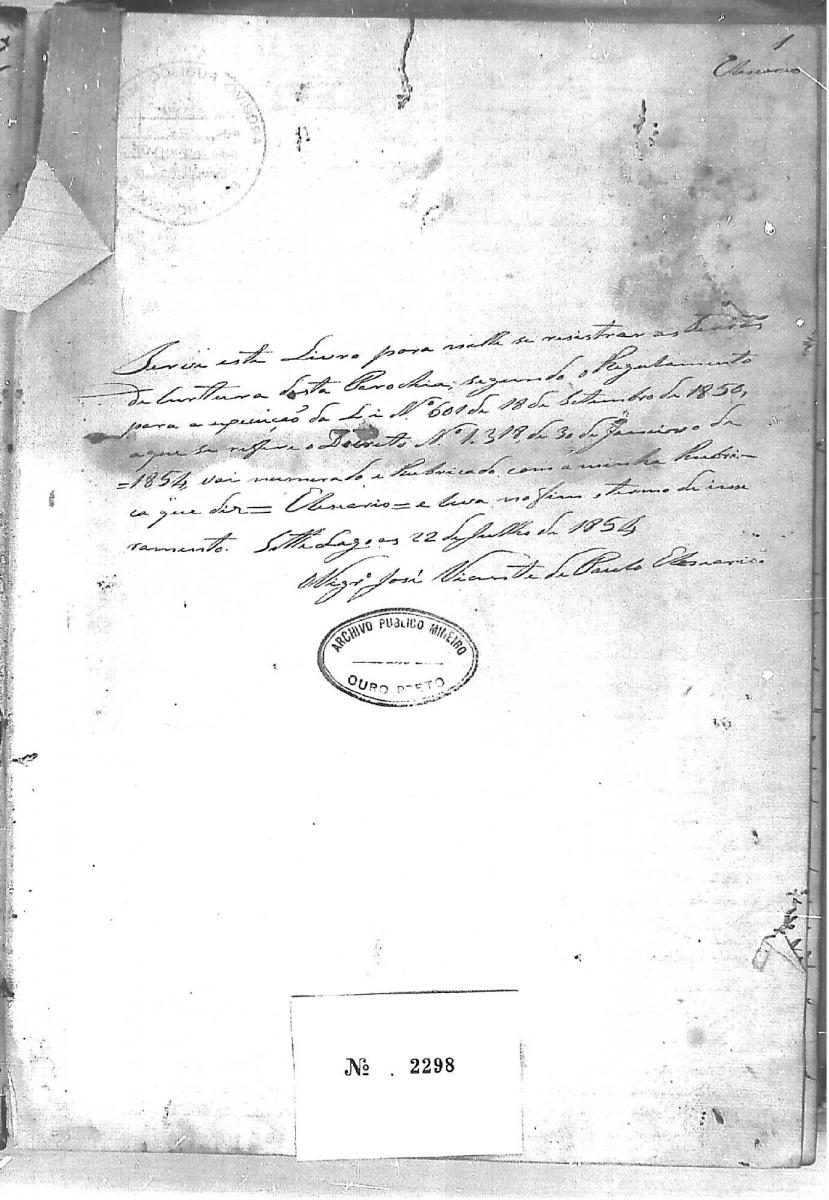 1
Elesiario
Servirá este Livro para nelle se resistrar as terras
de Curtura desta Parochia, segundo o Regulamento
para a expuição da Lei Nº 601 de 18 de Setembro de 1850,
a que se refere o Decreto Nº 1.318, de 30 de Janeiro de
=1854, vai numerado e Rubricado com a minha Rubri-
ca que diz= Elesiario= e leva no fim o termo de ince
ramento. Sette Lagoas 22 de Julho de 1854
O Vigrº José Vicente de Paula Elesiario.
ARCHIVO PUBLICO MINEIRO
OURO PRETO
Nº 2298